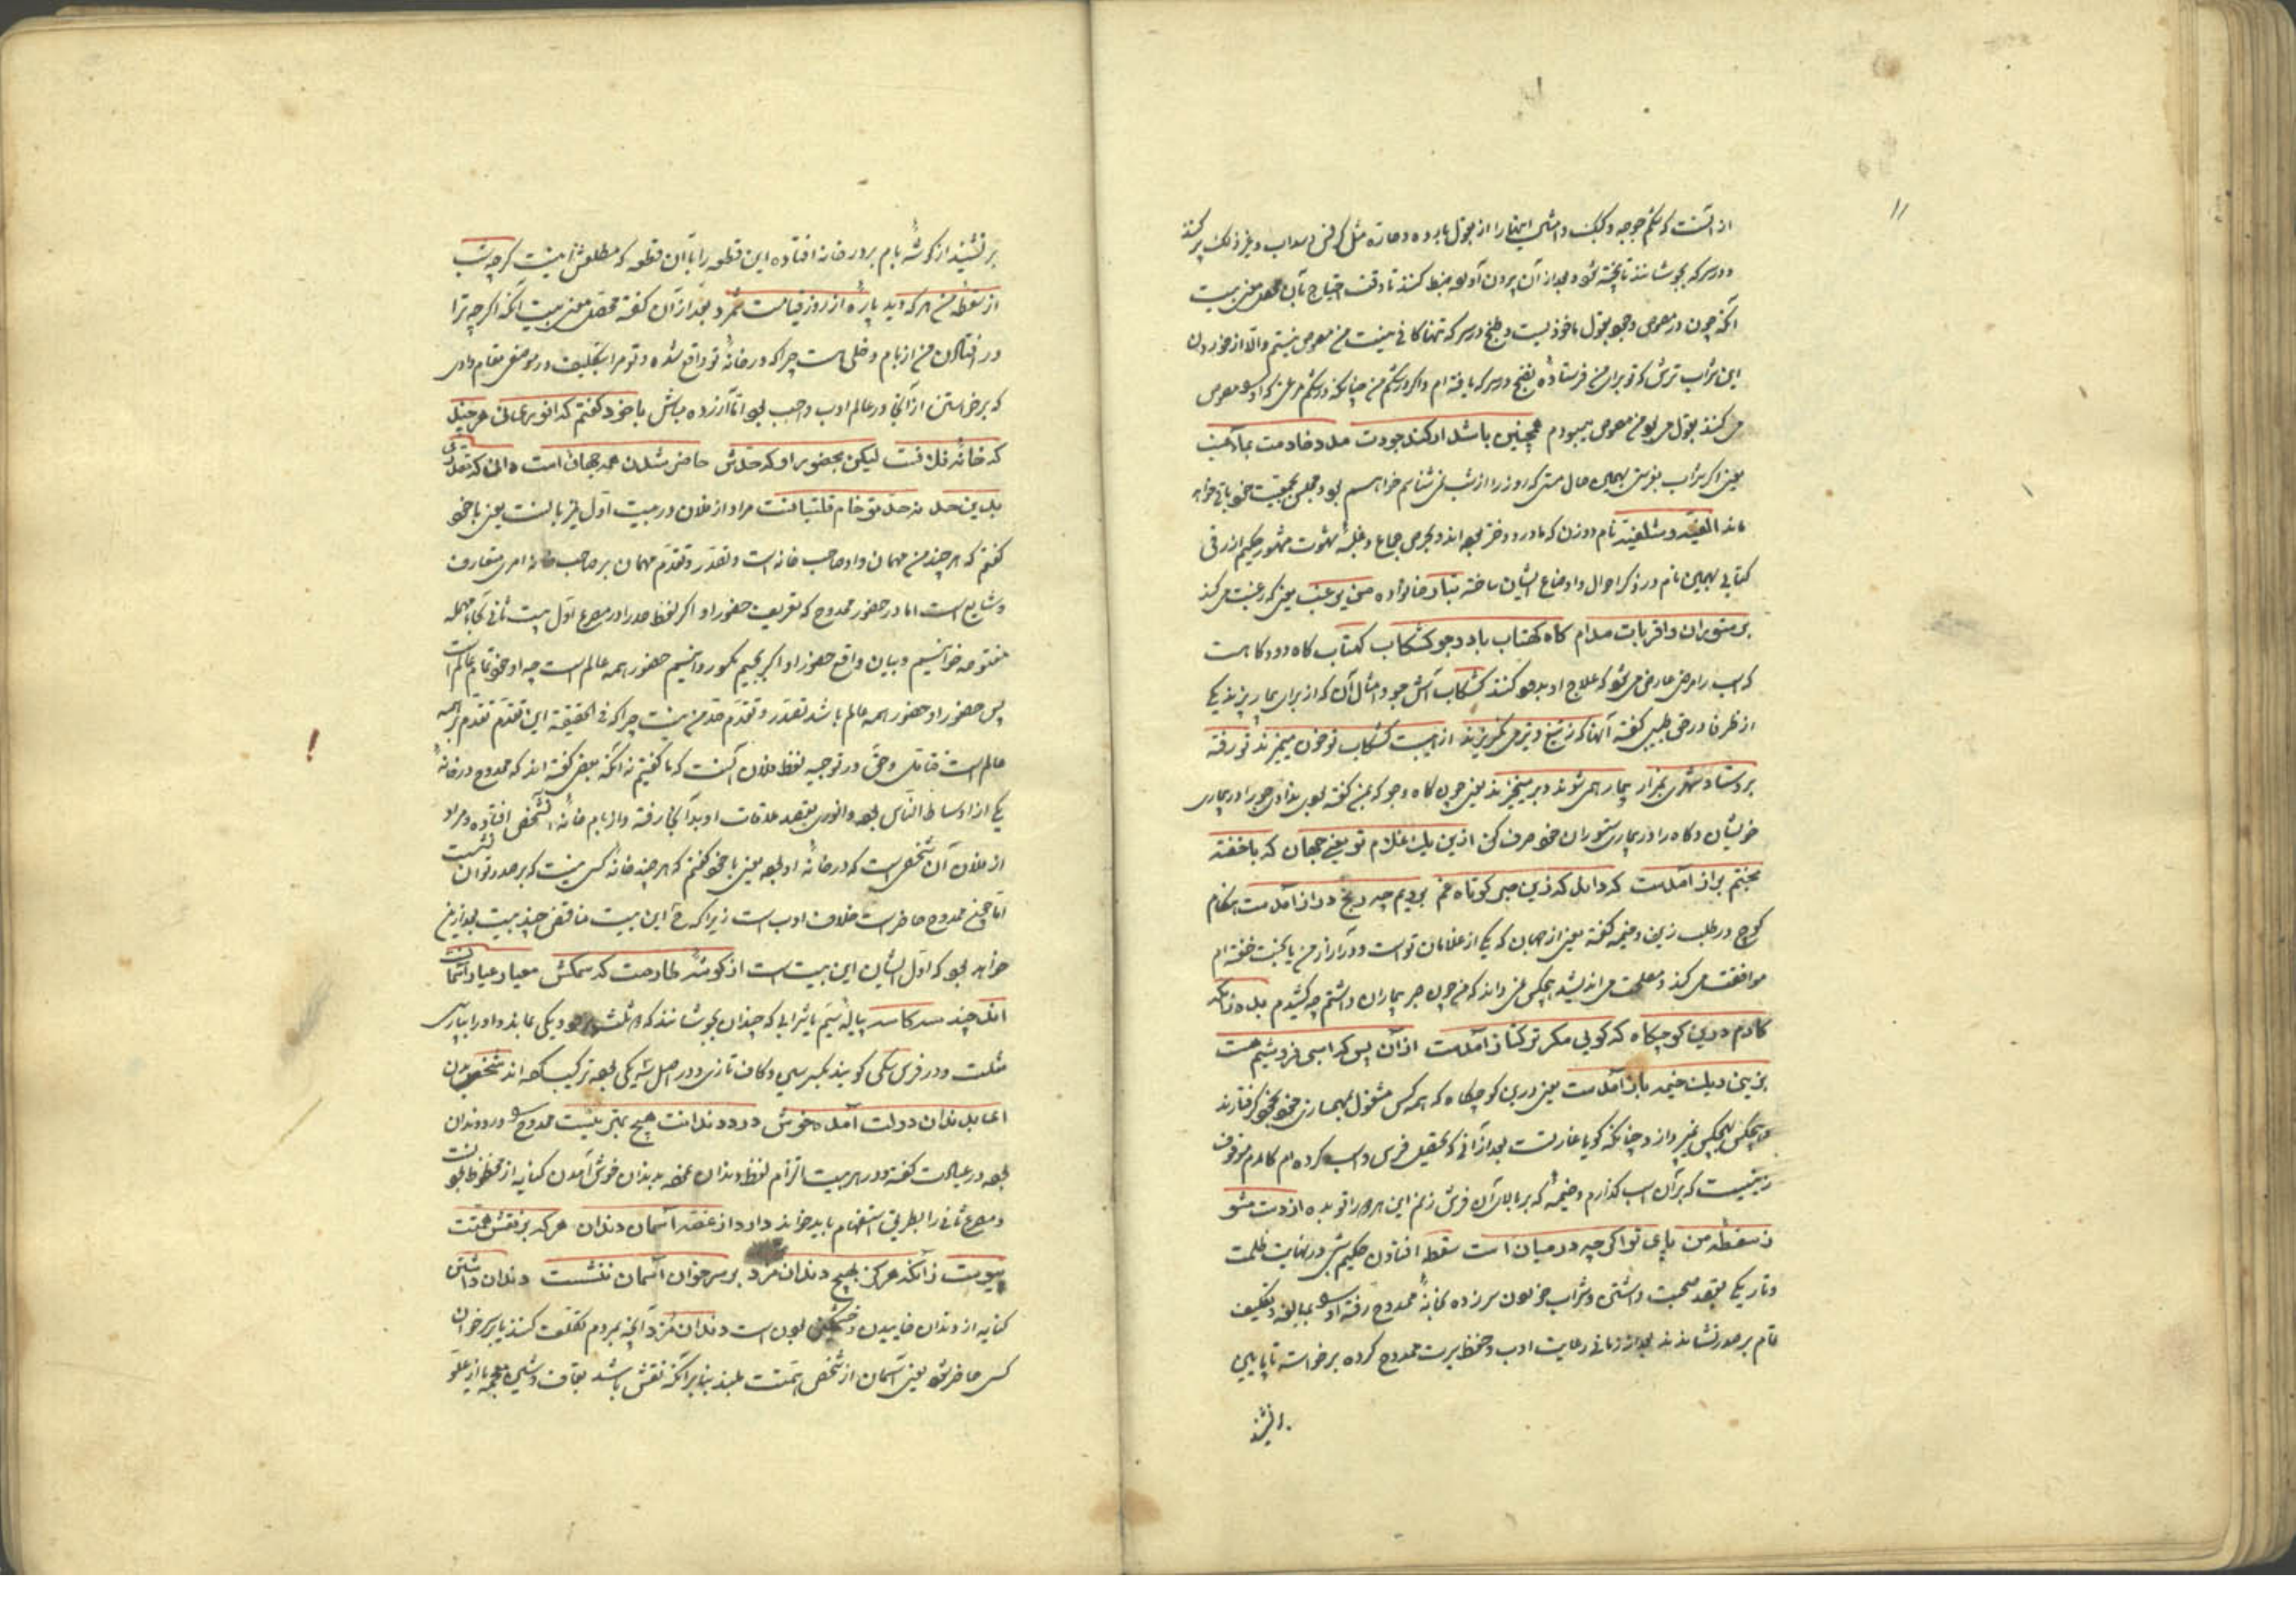 ۱۱
از آنست که شکم جوجه و کبک و امثال اینها را از بقول بارده و حاره مثل کرفس و سداب و غیر ذلک پر کنند
و در سرکه بجوشانند تا پخته شود و بعد از آن برون آورده ضبط کنند تا وقت احتیاج بآن محصل معنی بیت
آنکه چون در مصوص وجود بقول ماخوذ است و طبخ در سرکه تنها کافی نیست من مصوص نیستم والا از خوردن
این شراب ترش که تو برای من فرستاده نضج در سرکه یافته ام و اگر در شکم من چنانکه در شکم مرغی که او را مصوص
می کنند بقول می بود من مصوص میبودم همچنین باشد ار کند جودت مدد خادمت بماء عنب
یعنی اگر شراب نفرستی بهمین حال مستی که روز را از شب نمی شناسم خواهم بود و مجلس جمعیت خود باقی خواهد
ماند الفیه و شلفیه نام دو زن که مادر و دختر بوده اند و بحرص جماع و غلبه شهوت مشهور حکیم ازرقی
کتابی بهمین نام در ذکر احوال و اوضاع ایشان ساخته بنیاد خانواده می بر عنب یعنی که رغبت می کند
بر ستوران و اقربات مدام کاه کهتاب باد و جو کشکاب کهتاب کاه دود کاهست
که اسب را مرضی عارض می شود که علاج او بدو کنند کشکاب آش جو و امثال آن که از برای بیمار پزند یکی
از ظرفا در حق طبیبی گفته آنها که ز تیغ و تیر می نگریزند از هیبت کشکاب تو خون میریزند تو رفته
بروستا و شهری بمزار بیمار همی شوند و بر میخیزند یعنی چون کاه و جو که بمن گفته بودی ندادی جو را در بیماری
خویشان و کاه را در بیماری ستوران خود صرف کن ازین یک غلام تو یعنی جهان که با خفته
بختم براز آمدست کرد امل که زین صبر کوتاه عمر برویم چه رنج دراز آمدست هنگام
کوچ در طلب زین و خیمه گفته یعنی از جهان که یکی از غلامان تو است و در آزار من با بخت خفته ام
موافقت می کند و مصلحت می اندیشد هیچکس نمی داند که من چون صبر بیماران داشتم چه کشیدم بده زانکه
کارم درین کوچگاه که گویی مگر ترکتاز آمدست از آن پس که اسبی فروشیم هست
بزینی و یک خیمه باز آمدست یعنی درین کوچگاه که همه کس مشغول بهمسازی خود بخود گرفتارند
و هیچکس بهیچکس نمی پردازد چنانکه گویا غارتست بعد از آنی که تحصیل فرس و اسب کرده ام کارم موقوف
زینیست که بر آن اسب گذارم و خیمه که بر بالای آن فرش زنم این هر دو را تو بده از دست مشو
ز سقطه من پای تو اگر چه در میان است سقط افتادن حکیم شبی در نهایت ظلمت
و تاریکی بقصد صحبت داشتن و شراب خوردن سر زده بخانه ممدوح رفته او را بمبالغه و تکلیف
تمام بر صدر نشاندند بعد از زمانی رعایت ادب و حفظ سیرت ممدوح کرده برخواسته تا پایین
بر نشیند
بر نشیند از گوشه بام بر در خانه افتاده این قطعه را با آن قطعه که مطلعش اینست گر چه شب
از سقطه من هر که دید پاره از روز قیامت شمرد بعد از آن گفته محصل معنی بیت آنکه اگر چه ترا
در افتادن من از بام دخلی هست چرا که در خانه تو واقع شده و تو مرا بتکلیف در موضعی مقام دادی
که برخاستن از آنجا در عالم ادب واجب بود اما آزرده مباش با خود گفتم که انوری عمانی هر چند
که خانه فلانست لیکن بحضور او که حدش حاضر شدن همه جهان است دانی که تصدری
بدین حد نه حد تو خام قلتبانست مراد از فلان در بیت اول فیزبانست یعنی با خود
گفتم که هر چند من مهمان و او صاحب خانه است و تصدر و تقدم مهمان بر صاحب خانه امری متعارف
و شایع است اما در حضور ممدوح که تعریف حضور او اگر لفظ صدر را در مصرع اول بیت ثانی بحاء مهمله
مفتوحه خوانیم و بیان واقع حضور او اگر بجیم مکسور دانیم حضور همه عالم است چه او خود تمام عالم است
پس حضور او حضور همه عالم باشد تصدر و تقدم حد من نیست چرا که فی الحقیقة این تقدم تقدم بر همه
عالم است فتامل وحق در توجیه لفظ فلان آنست که ما گفتیم نه آنکه بعضی گفته اند که ممدوح در خانه
یکی از اوساط الناس بوده و انوری بقصد ملاقات او بدآنجا رفته و از بام خانه آنشخص افتاده و مراد
از فلان آن شخص است که در خانه او بوده یعنی با خود گفتم که هر چند خانه کسی نیست که بر صدر توان نشست
اما چون ممدوح حاضر است خلاف ادب است زیرا که این بیت مناقض چند بیت بعد ازین
خواهد بود که اول ایشان این بیت است از گوشه طارمت که سمکش معیار عیار آسمانست
اندر چند سه کاسه پیاله سیم یا شرابی که چندان بجوشانند که دو ثلث برود و یکی بماند و او را بپارسی
مثلث و در فرس سکی گویند بکسر سین و کاف تازی و در اصل سه یکی بوده ترکیب کرده اند شخص من
اعابدندان دولت آمده خوش درد دندانت هیچ بهتر نیست ممدوح را درد دندان
بوده در عیادت گفته و در هر بیت التزام لفظ دندان نموده بدندان خوش آمدن کنایه از محظوظ بودنست
و مصرع ثانی را بطریق استفهام باید خواند دارد از غصه آسمان دندان هر که بر نقش همتت
پیوست زآنکه هرگز بهیچ دندان مزد بر سر خوان آسمان ننشست دندان داشتن
کنایه از دندان خاییدن و خشمگین بودن است دندان مزد آنچه بمردم تکلف کنند تا بر سر خوان
کسی حاضر شود یعنی آسمان از شخص همتت بلند بنابر آنکه نقش باشد بقاف و شین معجمه یا از علو